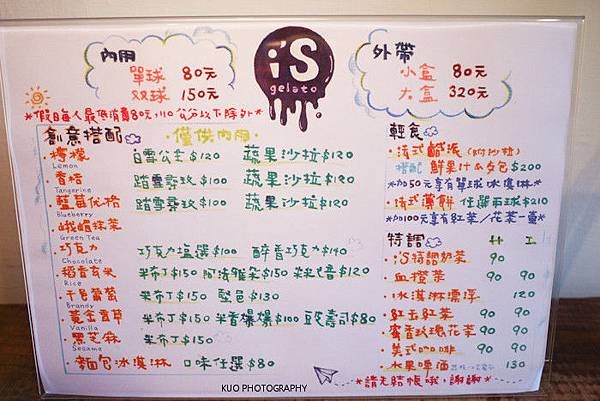 內用
單球 80元
双球 150元
i'S
gelato
外帶
小盒 80元
大盒 320元
*假日每人最低消費80元,110公分以下除外*
創意搭配 ·僅供內用·
·檸檬 白雪公主$120 蔬果沙拉$120
Lemon
·香桔 踏雪尋玫$100 蔬果沙拉$120
Tangerine
·藍莓优格 踏雪尋玫$100 蔬果沙拉$120
Blueberry
·峨嵋抹茶
Green Tea
·巧克力 巧克力塩選$100 醉香巧克力$140
Chocolate
·稻香玄米 米布丁$150
Rice
·千邑葡萄 米布丁$150 墨邑$130
Brandy
·黃金香草 米布丁$150 米香爆爆$100 豆皮壽司$80
Vanilla
·黑芝麻 米布丁$150
Sesame
·麵包冰淇淋 口味任選$80
輕食
·法式鹹派(附沙拉)
搭配 鮮果汁&麵包$200
*加50元享有單球冰淇淋*
·法式薄餅 任選兩球$210
*加100元享有紅茶/花茶一壺*
特調 H I
·i'S特調奶茶 90
·血橙茶 90 90
·冰淇淋漂浮 120
·紅玉紅茶 90 90
·蜜香玫瑰花茶 90 90
·美式咖啡 90 90
·水果啤酒 130
*請先結帳哦,謝謝*
KUO PHOTOGRAPHY